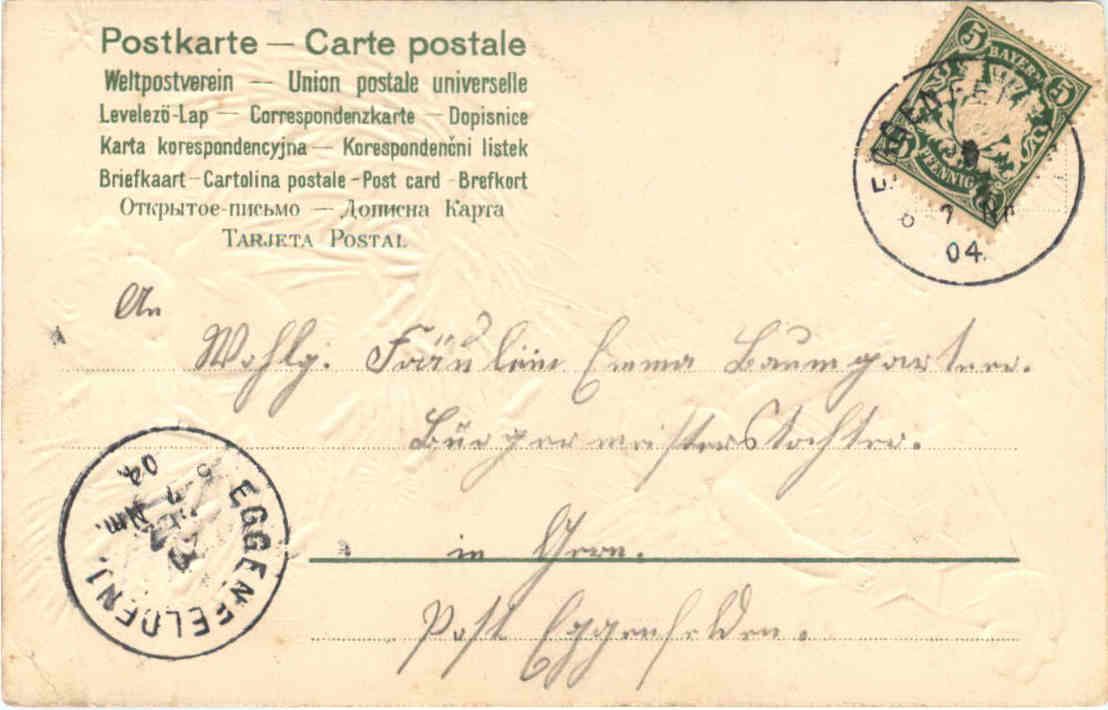 Postkarte — Carte postale
Weltpostverein — Union postale universelle
Levelező-Lap — Correspondenzkarte — Dopisnice
Karta korespondencyjna — Korespondenční listek
Briefkaart - Cartolina postale - Post card - Brefkort
Открытое-письмо — Дописна Карта
TARJETA POSTAL
5 BAYERN 5
PFENNIG
EGGENFEL
7
04
An
Wohlg. Fräulein Emma Baumgartner.
Bürgermeisterstochter.
in Gern.
Post Eggenfelden.
EGGENFELDEN
7
Nm.
04